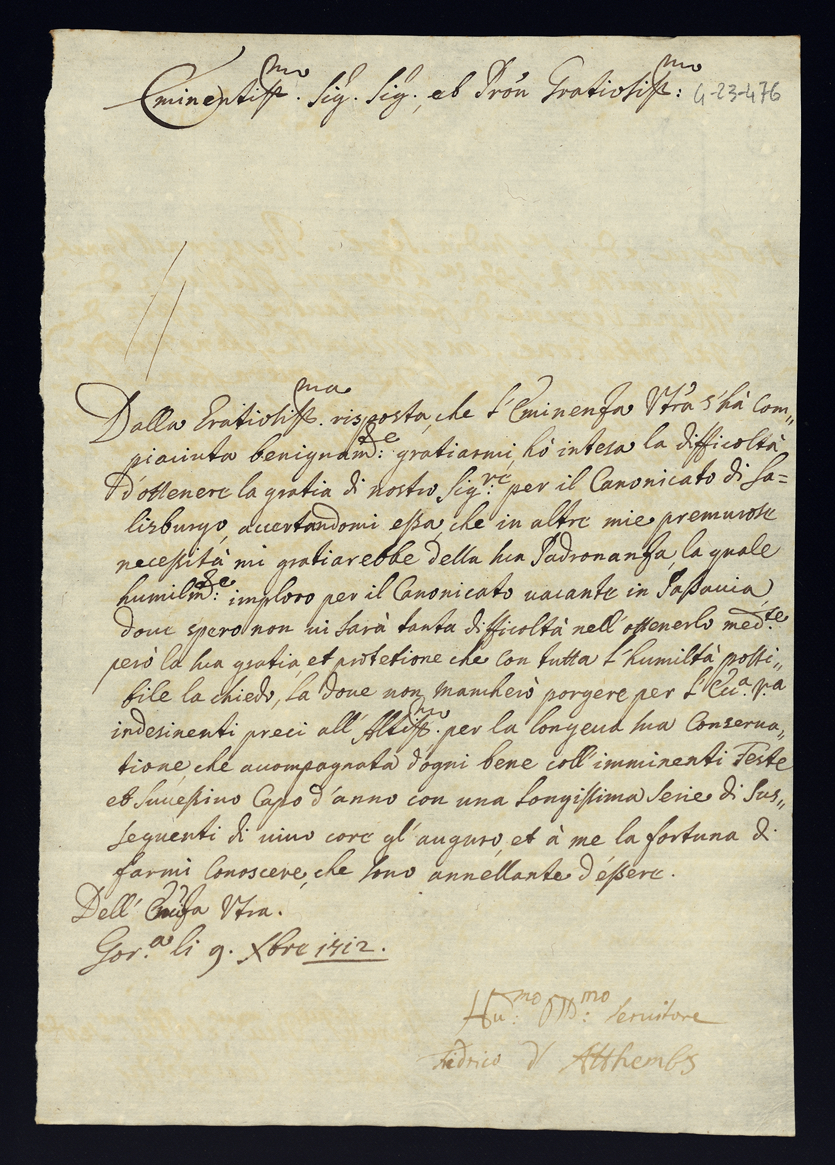 Eminentiss.mo Sig. Sig., et Pròn Gratiosiss.mo: G-23-476
Dalla Gratiosiss.ma risposta, che l'Eminenza Vtra s'hà com„
piaciuta benignam.te: gratiarmi, hò intesa la difficoltà
d'ottenere la gratia di nostro Sig.re, per il Canonicato di Sa=
lisburgo, accertandomi essa, che in altre mie premurose
necessità mi gratiarebbe della sua Padronanza, la quale
humilm.te: imploro per il Canonicato vacante in Passavia,
doue spero non ui sarà tanta difficoltà nell'ottenerlo med.te
però la sua gratia et protetione che con tutta l'humiltà possi„
bile la chiedo, la doue non mancherò porgere per l'Ecc.a V.a
indesinenti preci all'Altiss.mo per la longeua sua Conserua„
tione, che accompagnata d'ogni bene coll'imminenti Feste
et successiuo Capo d'anno con una longissima serie di sus„
seguenti di uiuo core gl'auguro, et à me la fortuna di
farmi conoscere, che sono annellante d'essere.
Dell'Emza Vtra.
Gor.a li 9. Xbre 1712.
Hu.mo Dd.mo: seruitore
Fidrico d'Atthembs